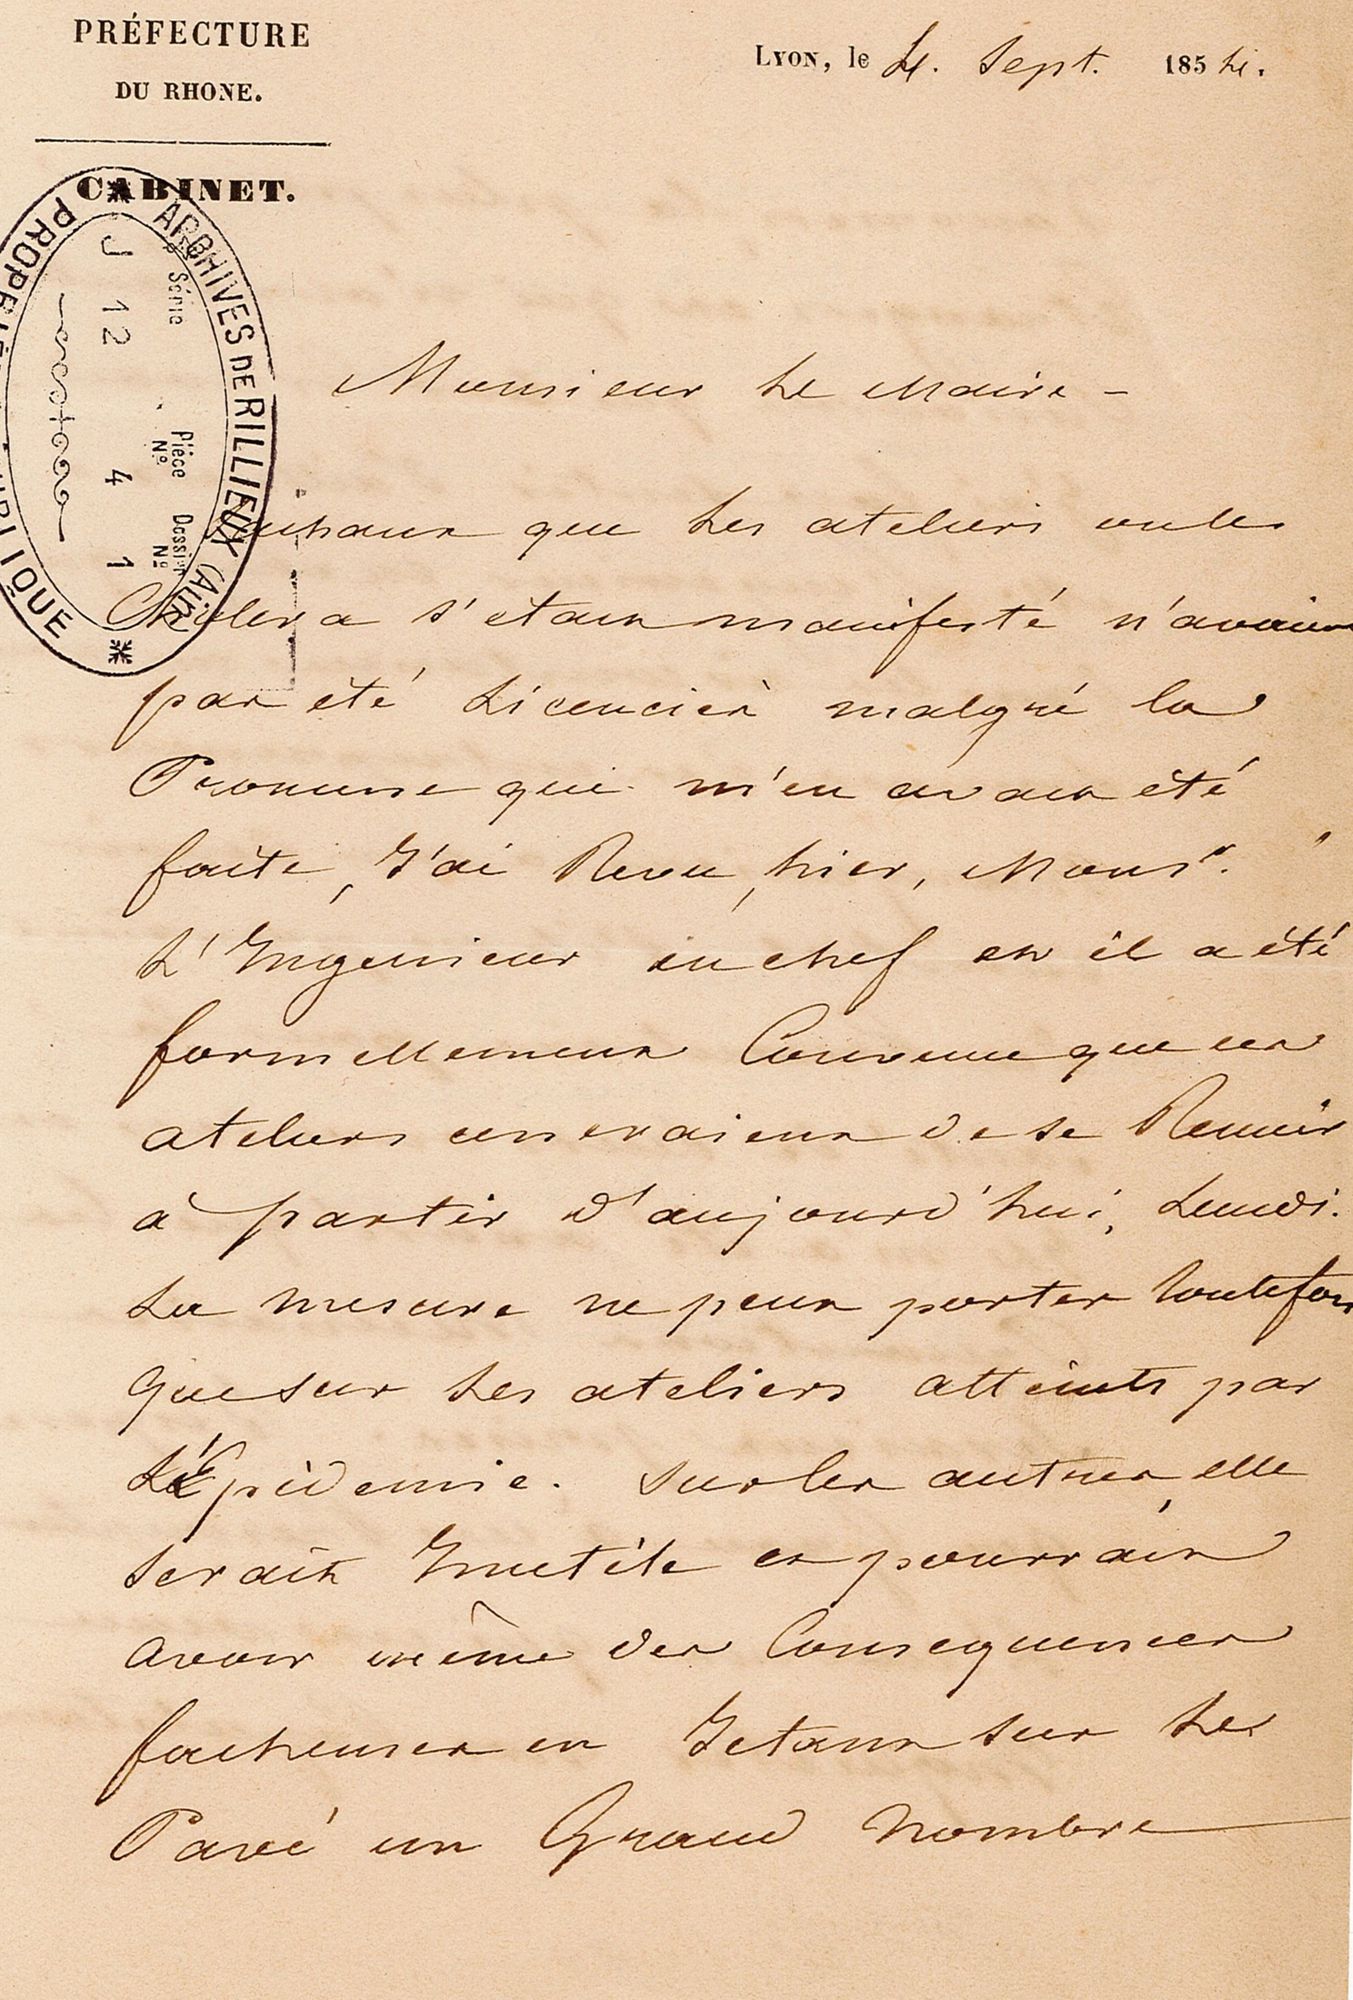 PRÉFECTURE
DU RHONE.
CABINET.
Lyon, le 4. Sept. 1854.
ARCHIVES DE RILLIEUX (Ain)
PROPRIÉTÉ PUBLIQUE
Série
Dossier No
Pièce No
J 12 4 1
Monsieur Le Maire -
Sachant que Les ateliers ou le
Choléra s'etait manifesté n'avaient
pas été Licenciés malgré la
Promesse qui m'en avait été
faite, J'ai Revu, hier, Monsr.
L'Ingenieur en chef et il a été
formellement Convenu que ces
ateliers cesseraient de se Reunir
à partir d'aujourd'hui, Lundi.
La mesure ne peut porter toutefois
que sur Les ateliers atteints par
L'Épidemie. Sur les autres, elle
serait Inutile et pourrait
avoir même des Consequences
facheuses en Jetant sur Le
Pavé un Grand nombre